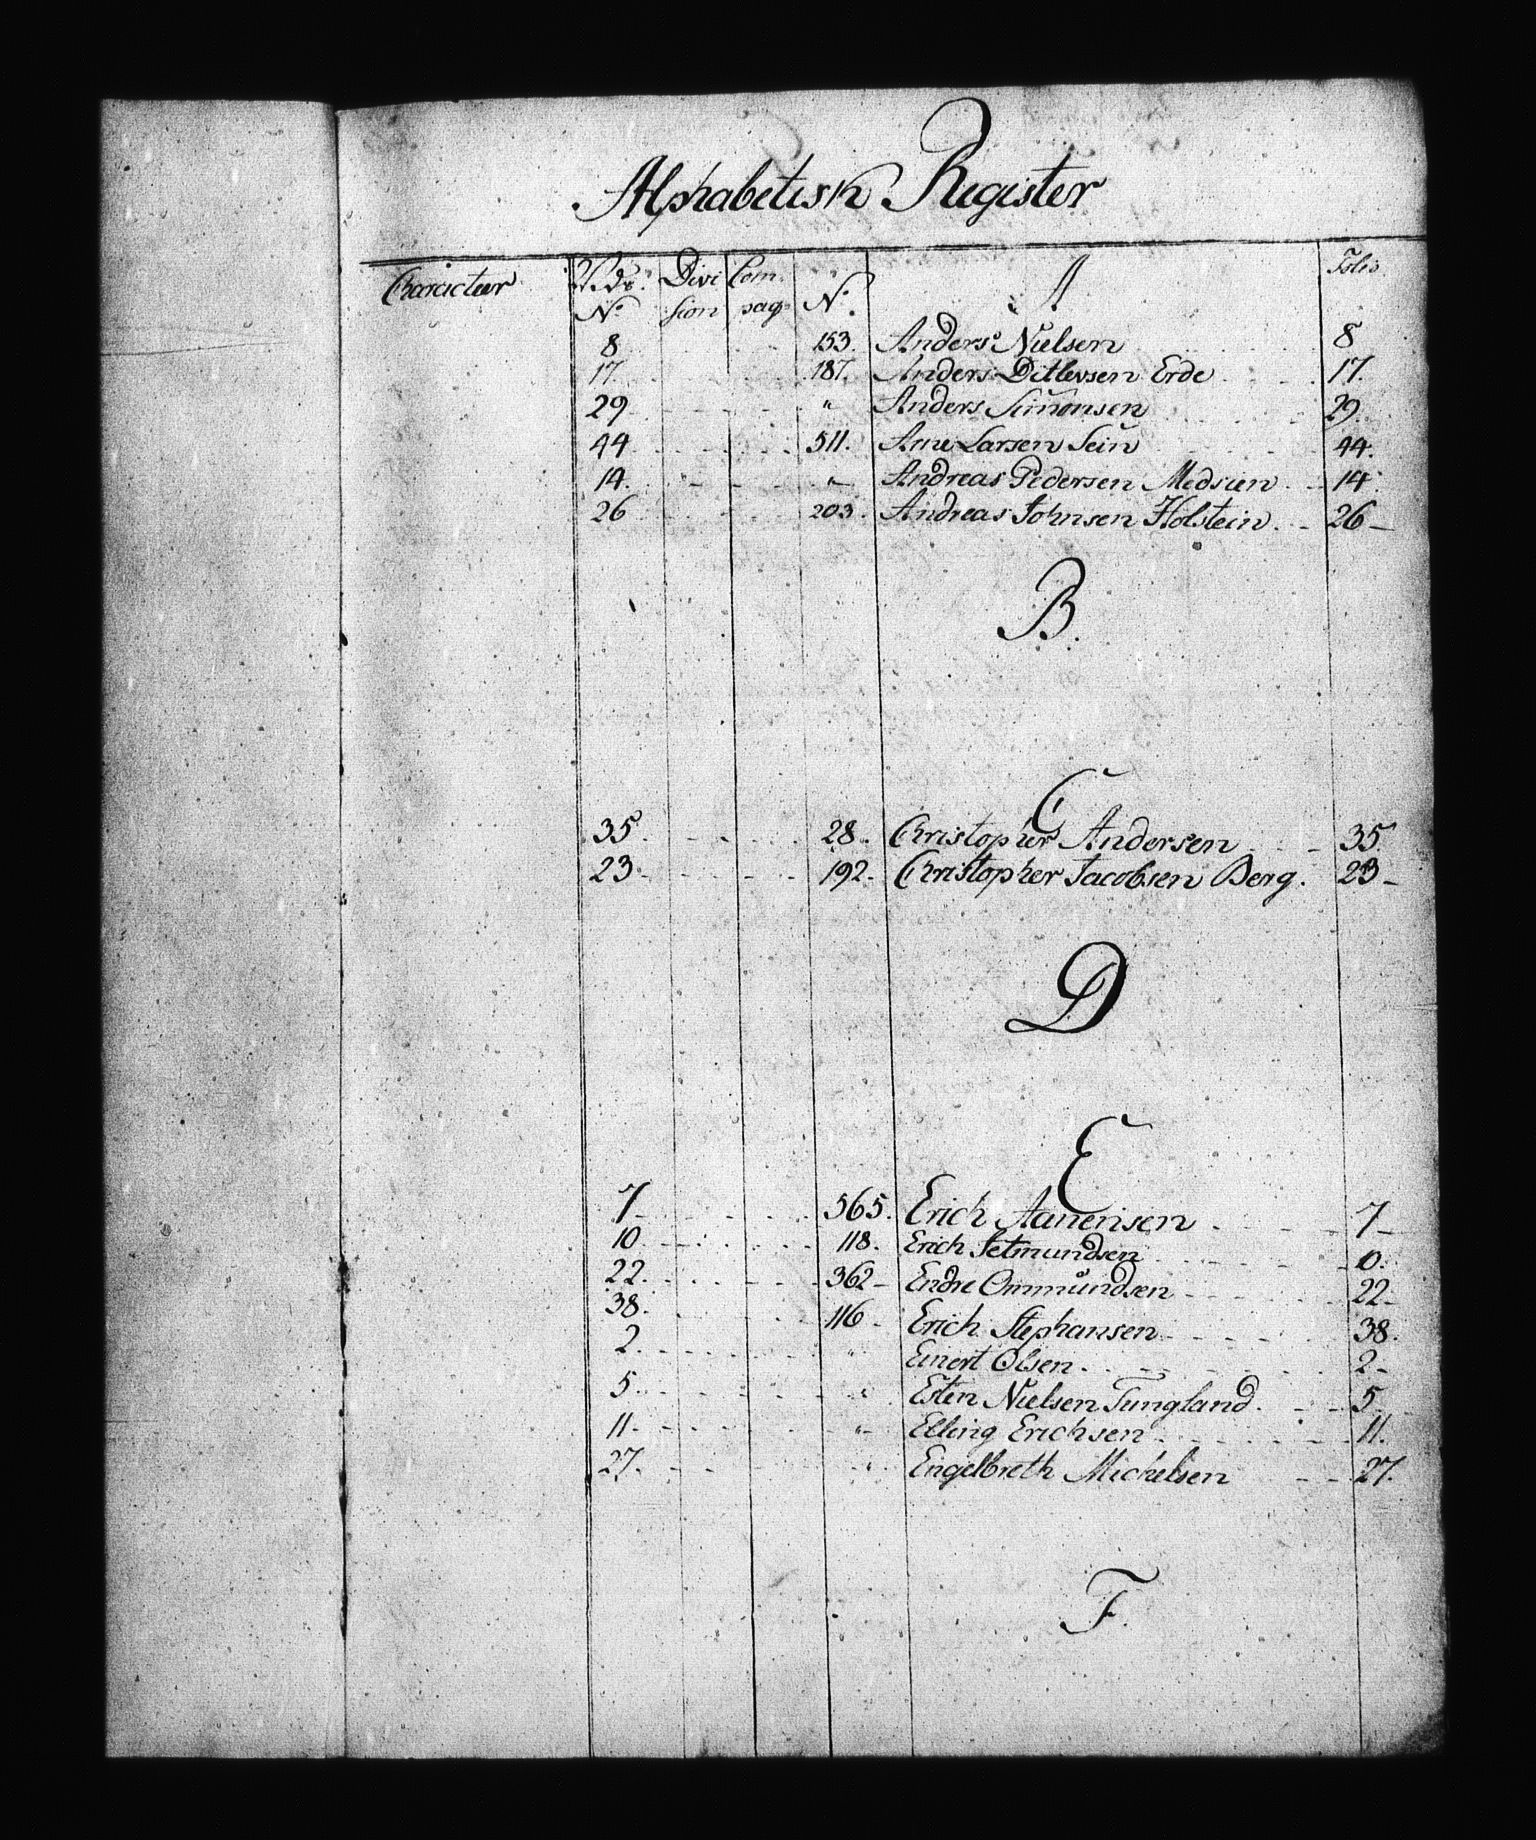 Alphabetisk Register
Characteer N.º Divi sion Com- pag N.º A Folio
8 153. Anders Nielsen 8
17 187. Anders Ditlevsen Erde 17.
29 " Anders Simonsen 29.
44 511. Arne Larsen Sein 44.
14. " Andreas Pedersen 14.
26 203. Andreas Johnsen Holstein 26
B.
C
35 28. Christopher Andersen 35
23 192. Christopher Jacobsen Berg. 23
D
E
7 565. Erich Aanensen 7
10 118. Erich Setmundsen 10.
22. 362 Endre Ommundsen 22
38. 116 Erich Stephansen 38.
2. " Einert Olsen 2
5. " Esten Nielsen Tungland 5
11. " Elling Erichsen 11.
27. " Engelbreth Michelsen 27.
F.